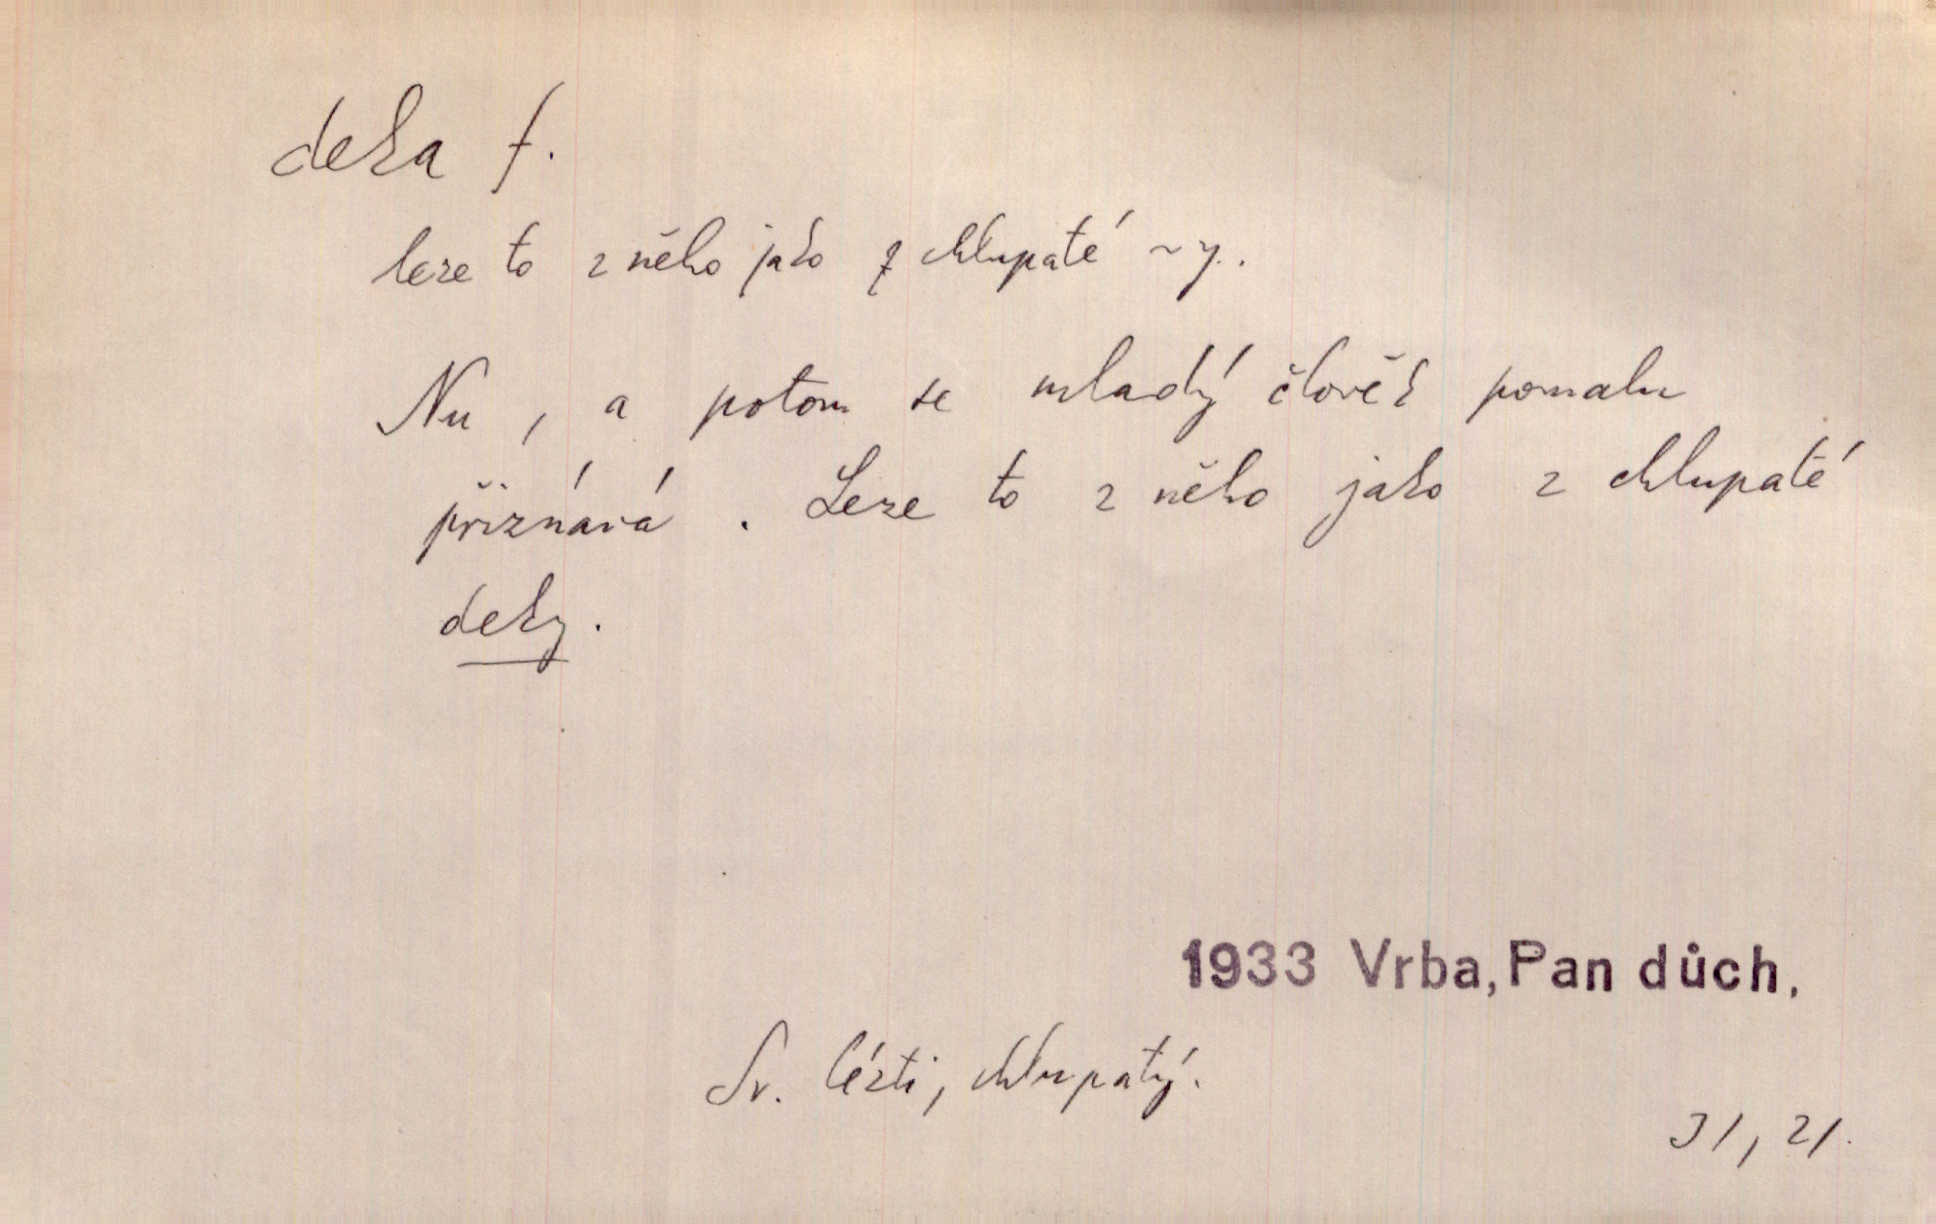 deka f.
leze to z něho jako z chlupaté ~y.
Nu, a potom se mladý člověk pomalu
přiznává. Leze to z něho jako z chlupaté
deky.
1933 Vrba, Pan důch.
Sr. lézti, chlupatý.
31, 21.